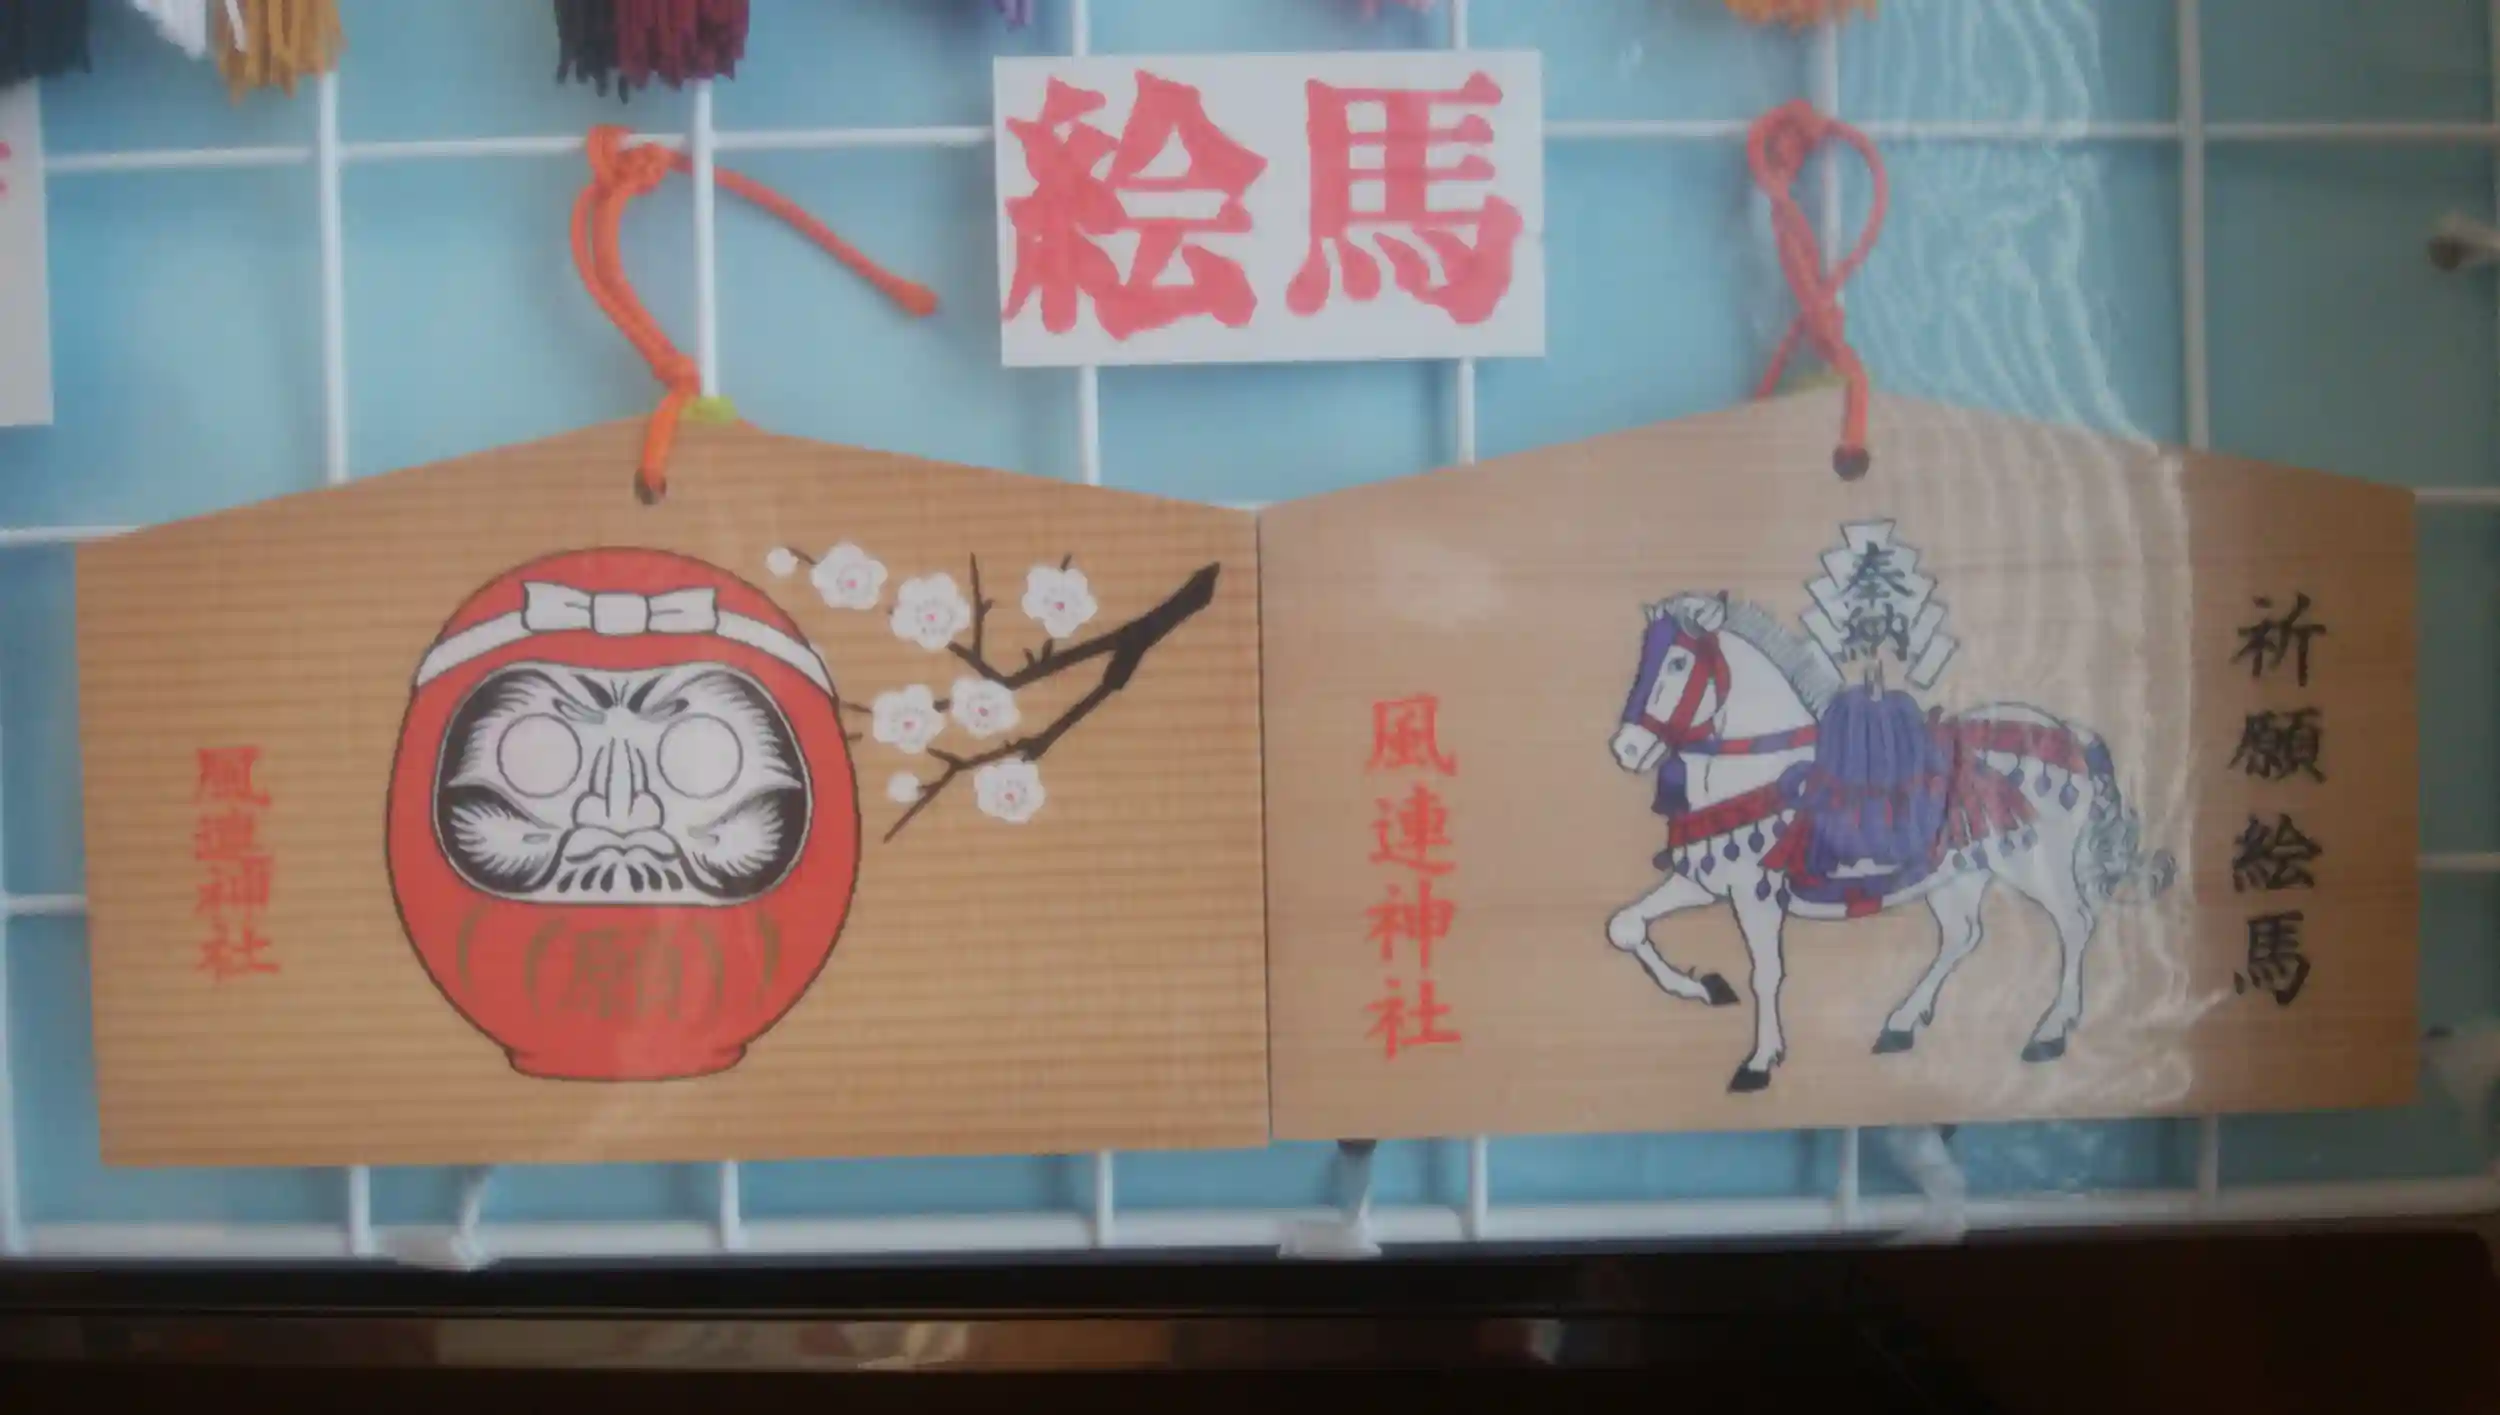 絵馬
風連神社
願
奉納
風連神社
祈願絵馬